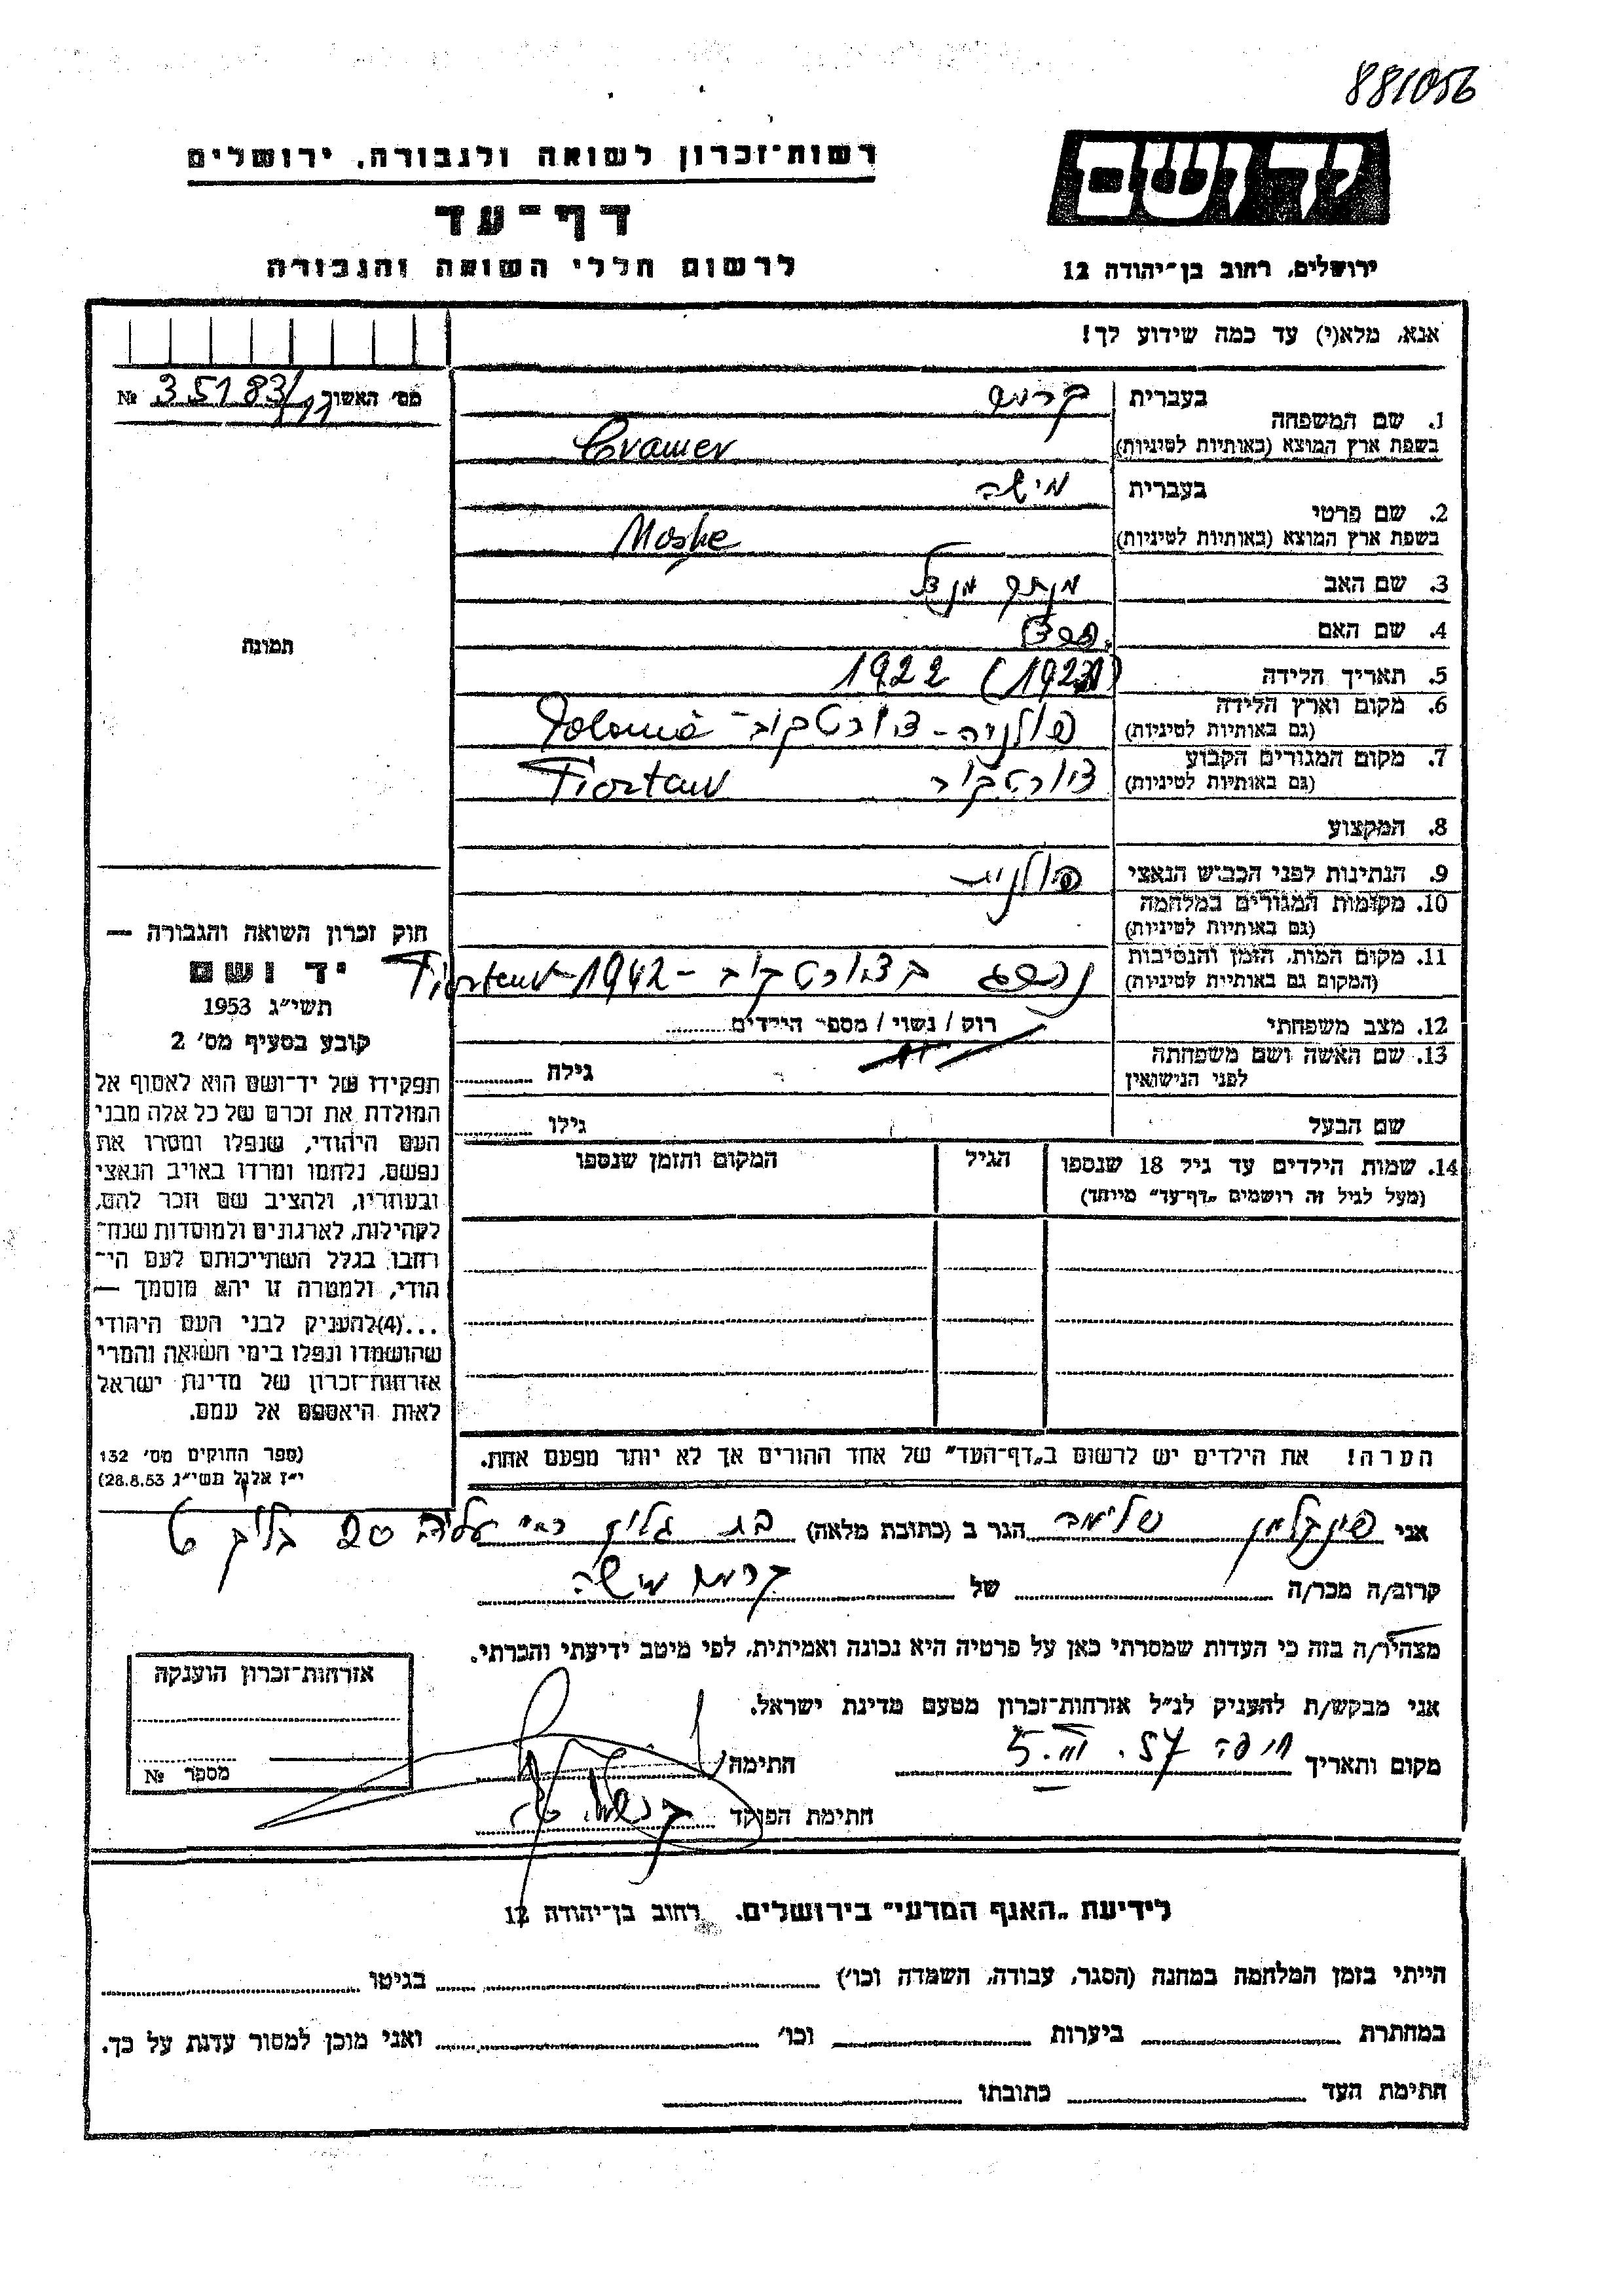 881056
רשות־זכרון לשואה ולגבורה, ירושלים
יד ושם
דף־עד
לרשום חללי השואה והגבורה
ירושלים, רחוב בן־יהודה 12
אנא, מלא(י) עד כמה שידוע לך!
מס' האשור № 35183/
1. שם המשפחה
בעברית
בשפת ארץ המוצא (באותיות לטיניות) Cramer
2. שם פרטי
בעברית
בשפת ארץ המוצא (באותיות לטיניות) Moshe
3. שם האב
4. שם האם
תמונה
5. תאריך הלידה 1922
6. מקום וארץ הלידה
(גם באותיות לטיניות) פולניה - צ'ורטקוב -
7. מקום המגורים הקבוע
(גם באותיות לטיניות) צ'ורטקוב
8. המקצוע
9. הנתינות לפני הכבוש הנאצי פולנית
10. מקומות המגורים במלחמה
(גם באותיות לטיניות)
11. מקום המות, הזמן והנסיבות
(המקום גם באותיות לטיניות) בצ'ורטקוב - 1942
12. מצב משפחתי רוק / נשוי / מספר הילדים
13. שם האשה ושם משפחתה
לפני הנישואין גילה
שם הבעל גילו
14. שמות הילדים עד גיל 18 שנספו הגיל המקום והזמן שנספו
(מעל לגיל זה רושמים „דף־עד" מיוחד)
חוק זכרון השואה והגבורה —
יד ושם
תשי"ג 1953
קובע בסעיף מס' 2
תפקידו של יד־ושם הוא לאסוף אל
המולדת את זכרם של כל אלה מבני
העם היהודי, שנפלו ומסרו את
נפשם, נלחמו ומרדו באויב הנאצי
ובעוזריו, ולהציב שם וזכר להם,
לקהילות, לארגונים ולמוסדות שנח־
רחבו בגלל השתייכותם לעם הי־
הודי, ולמטרה זו יהא מוסמך —
...(4)להעניק לבני העם היהודי
שהושמדו ונפלו בימי השואה והמרי
אזרחות־זכרון של מדינת ישראל
לאות היאספם אל עמם.
(ספר החוקים מס' 132
י"ז אלול תשי"ג 28.8.53)
הערה! את הילדים יש לרשום ב„דף־העד" של אחד ההורים אך לא יותר מפעם אחת.
אני פינקלמן הגר ב (כתובת מלאה) בת גלים
קרוב/ה מכר/ה של קרמר
מצהיר/ה בזה כי העדות שמסרתי כאן על פרטיה היא נכונה ואמיתית, לפי מיטב ידיעתי והכרתי.
אני מבקש/ת להעניק לנ"ל אזרחות־זכרון מטעם מדינת ישראל.
מקום ותאריך חיפה 5.III.57 חתימה
חתימת הפוקד
אזרחות־זכרון הוענקה
מספר №
לידיעת „האגף המדעי" בירושלים, רחוב בן־יהודה 12
הייתי בזמן המלחמה במחנה (הסגר, עבודה, השמדה וכו') בגיטו
במחתרת ביערות וכו' ואני מוכן למסור עדות על כך.
חתימת העד כתובתו